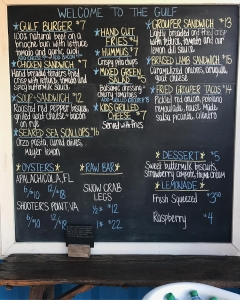 WELCOME TO THE GULF
*GULF BURGER *7
100% natural beef on a
brioche bun with lettuce
tomato and garlic aioli
*CHICKEN SANDWICH *
Hand breaded tenders fried
crisp with lettuce, tomato and
spicy buttermilk sauce
*SOUP-SANDWICH *12
Tomato red pepper bisque
grilled goat cheese + bacon
on rye
*SEARED SEA SCALLOPS *16
Orzo pasta, cured olives,
meyer lemon
*HAND CUT
FRIES *4
*HUMMUS *7
Crispy pita chips
*MIXED GREEN
SALAD *5
Balsamic dressing
cherry tomatoes
*KIDS GRILLED
CHEESE *7
Served with fries
*GROUPER SANDWICH *13
Lightly breaded and fried crisp
with lettuce, tomato and our
lemon aioli sauce
*BRAISED LAMB SANDWICH *15
Caramelized onions, arugula,
goat cheese
*FRIED GROUPER TACOS *14
Pickled red onion, poblano
crema, queso fresco, mole
salsa picante, cilantro
*OYSTERS*
APALACHICOLA, FL
6/$10 12/$18
SHOOTERS POINT, VA
6/$10 12/$18
*RAW BAR*
SNOW CRAB
LEGS
½# $12
1# $22
*DESSERT* $5
Sweet buttermilk biscuits,
strawberry compote, thyme cream
*LEMONADE*
Fresh Squeezed $3.50
Raspberry $4